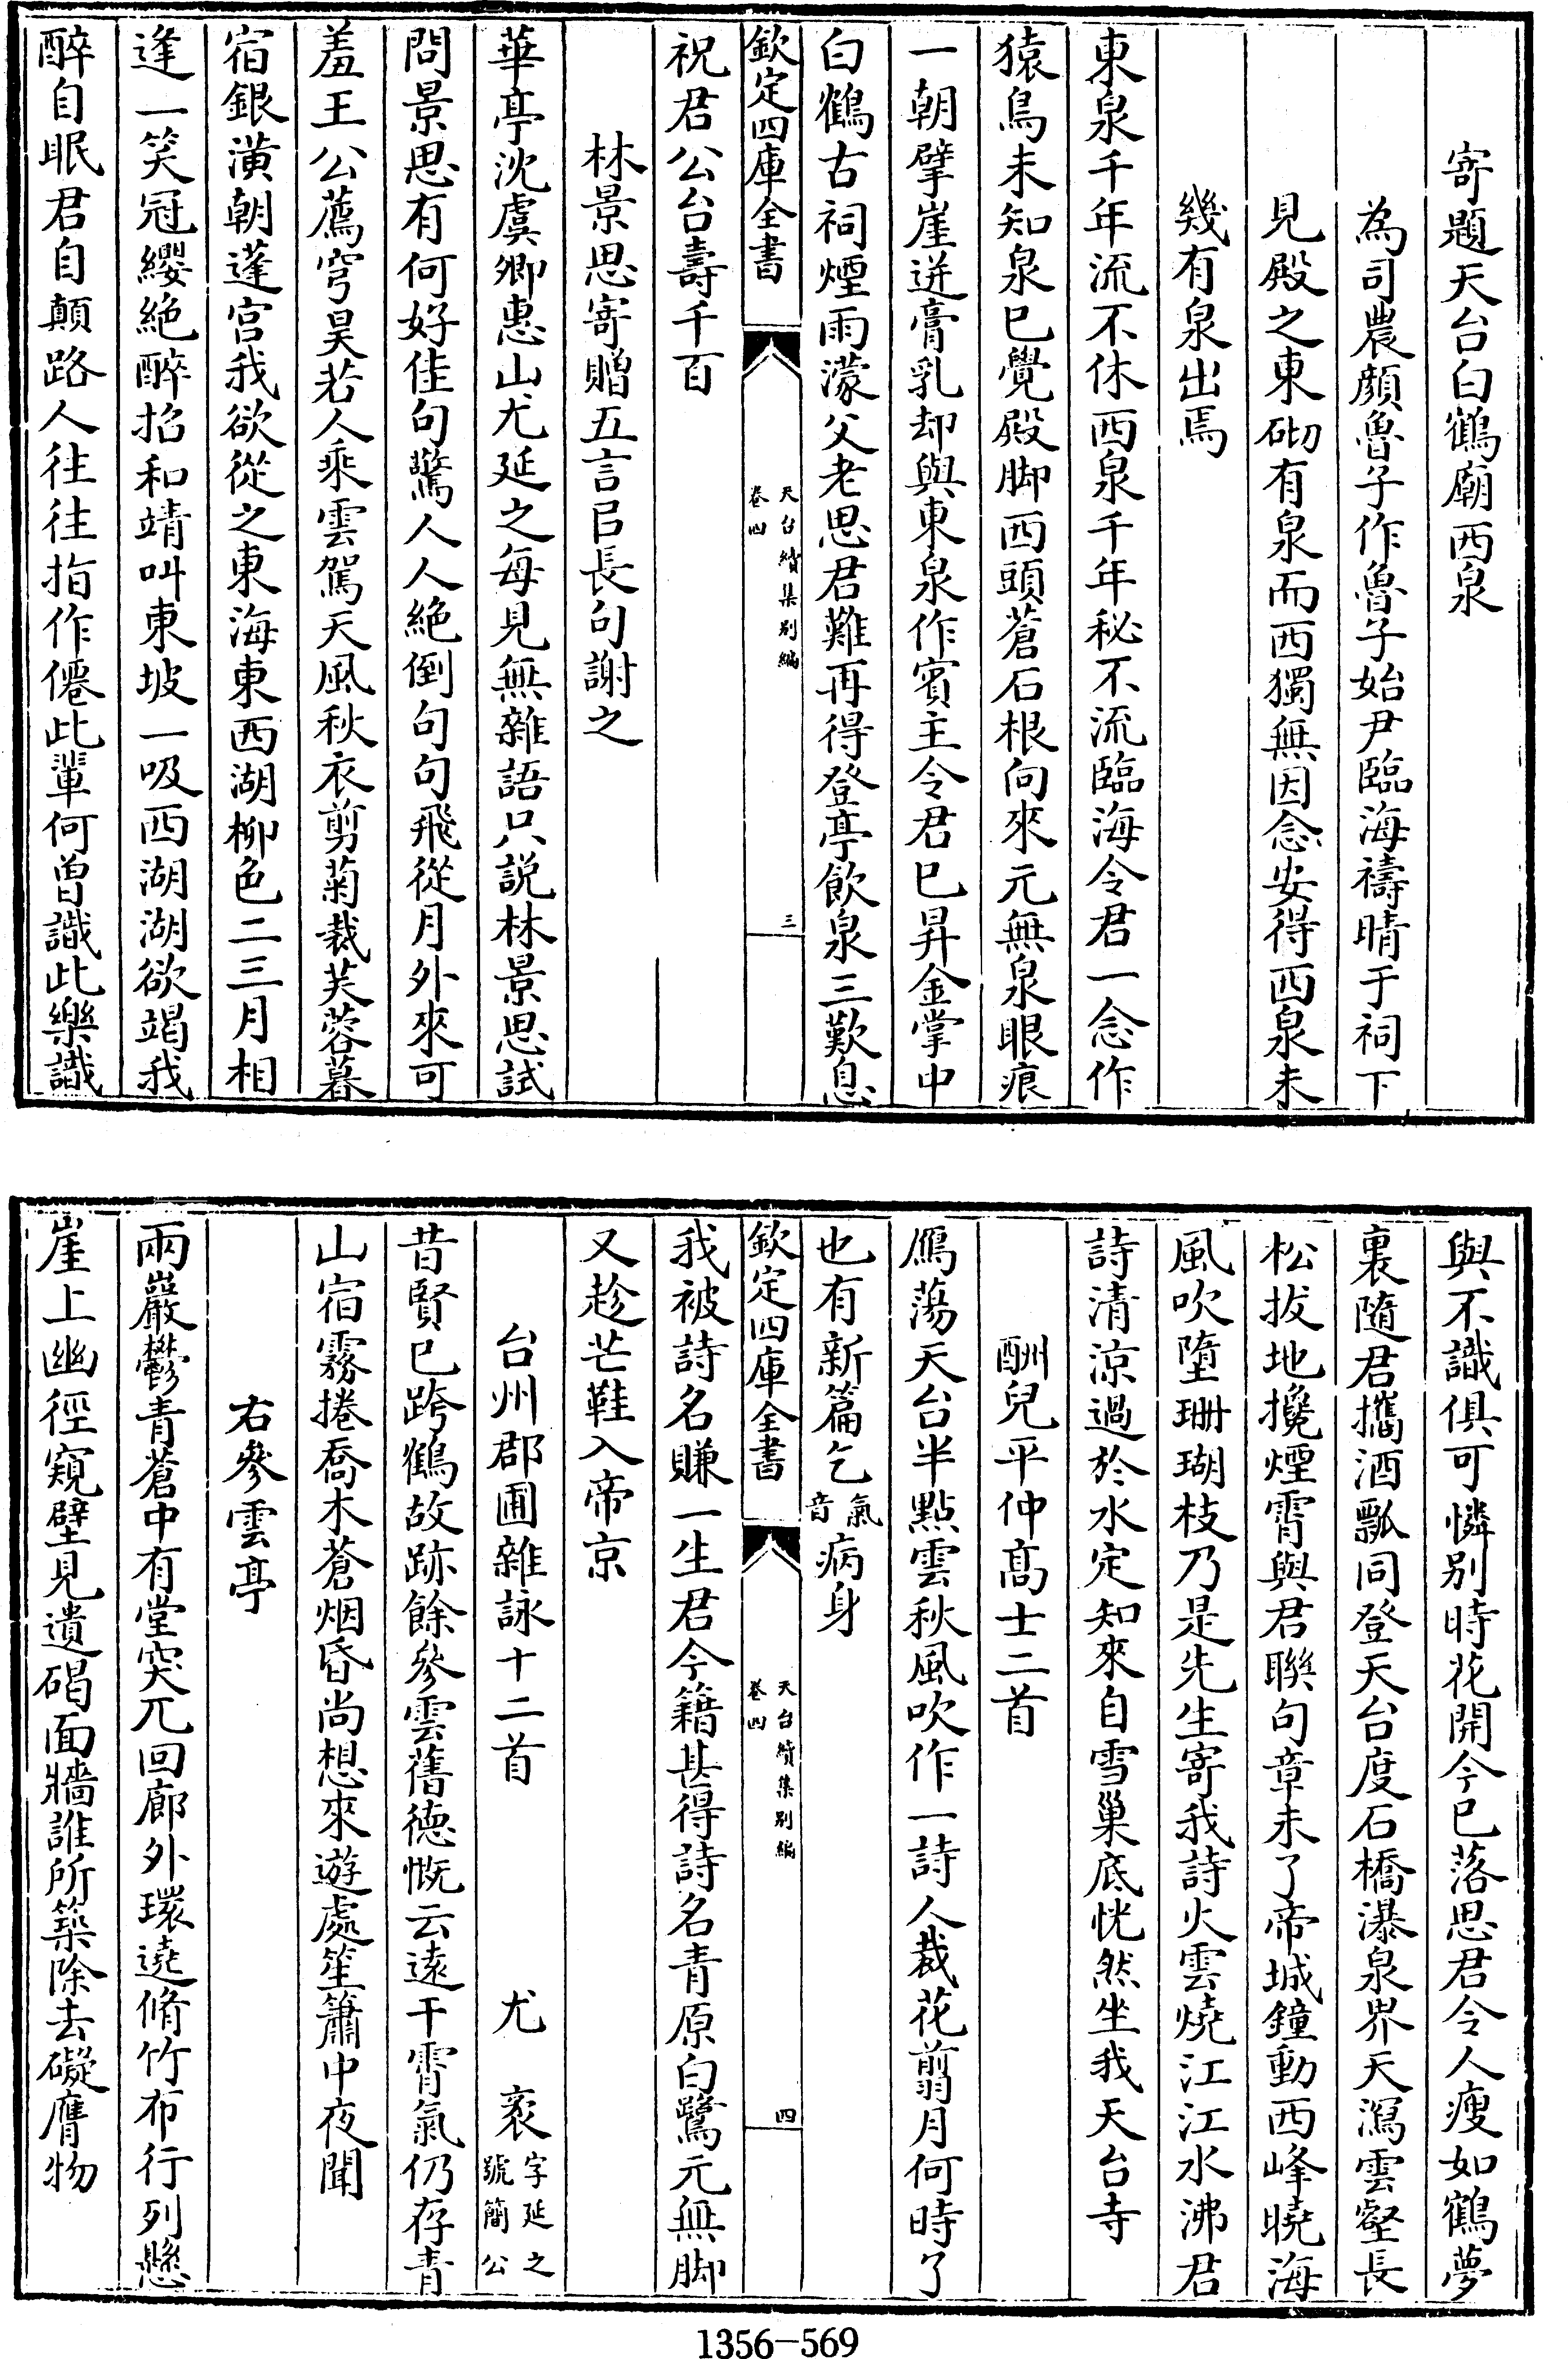 寄題天台白鶴廟西泉
為司農顏魯子作魯子始尹臨海禱晴于祠下
見殿之東砌有泉而西獨無因念安得西泉未
幾有泉出焉
東泉千年流不休西泉千年秘不流臨海令君一念作
猿鳥未知泉已覺殿脚西頭蒼石根向來元無泉眼痕
一朝擘崖迸膏乳却與東泉作賓主令君已昇金掌中
白鶴古祠煙雨濛父老思君難再得登亭飲泉三歎息
欽定四庫全書
天台續集别編
卷四
三
祝君公台壽千百
林景思寄贈五言㠯長句謝之
華亭沈虞卿惠山尤延之每見無雜語只説林景思試
問景思有何好佳句驚人人絶倒句句飛從月外來可
羞王公薦穹昊若人乘雲駕天風秋衣剪菊裁芙蓉暮
宿銀潢朝蓬宫我欲從之東海東西湖柳色二三月相
逢一笑冠纓絶醉招和靖叫東坡一吸西湖湖欲竭我
醉自眠君自顛路人往往指作僊此輩何曽識此樂識
與不識俱可憐别時花開今已落思君令人瘦如鶴夢
裏隨君攜酒瓢同登天台度石橋瀑泉界天瀉雲壑長
松拔地攙煙霄與君聯句章未了帝城鐘動西峰曉海
風吹墮珊瑚枝乃是先生寄我詩火雲燒江江水沸君
詩清凉過於水定知來自雪巢底恍然坐我天台寺
酬皃平仲髙士二首
鴈蕩天台半點雲秋風吹作一詩人裁花翦月何時了
也有新篇乞氣音病身
欽定四庫全書
天台續集别編
卷四
四
我被詩名賺一生君今籍甚得詩名青原白鷺元無脚
又趁芒鞋入帝京
台州郡圃雜詠十二首 尤袤字延之號簡公
昔賢已跨鶴故跡餘參雲舊徳慨云遠干霄氣仍存青
山宿霧捲喬木蒼烟昏尚想來遊處笙簫中夜聞
右參雲亭
兩巖鬱青蒼中有堂突兀回廊外環遶脩竹布行列懸
崖上幽徑窺壁見遺碣面牆誰所築除去礙膺物
1356-569